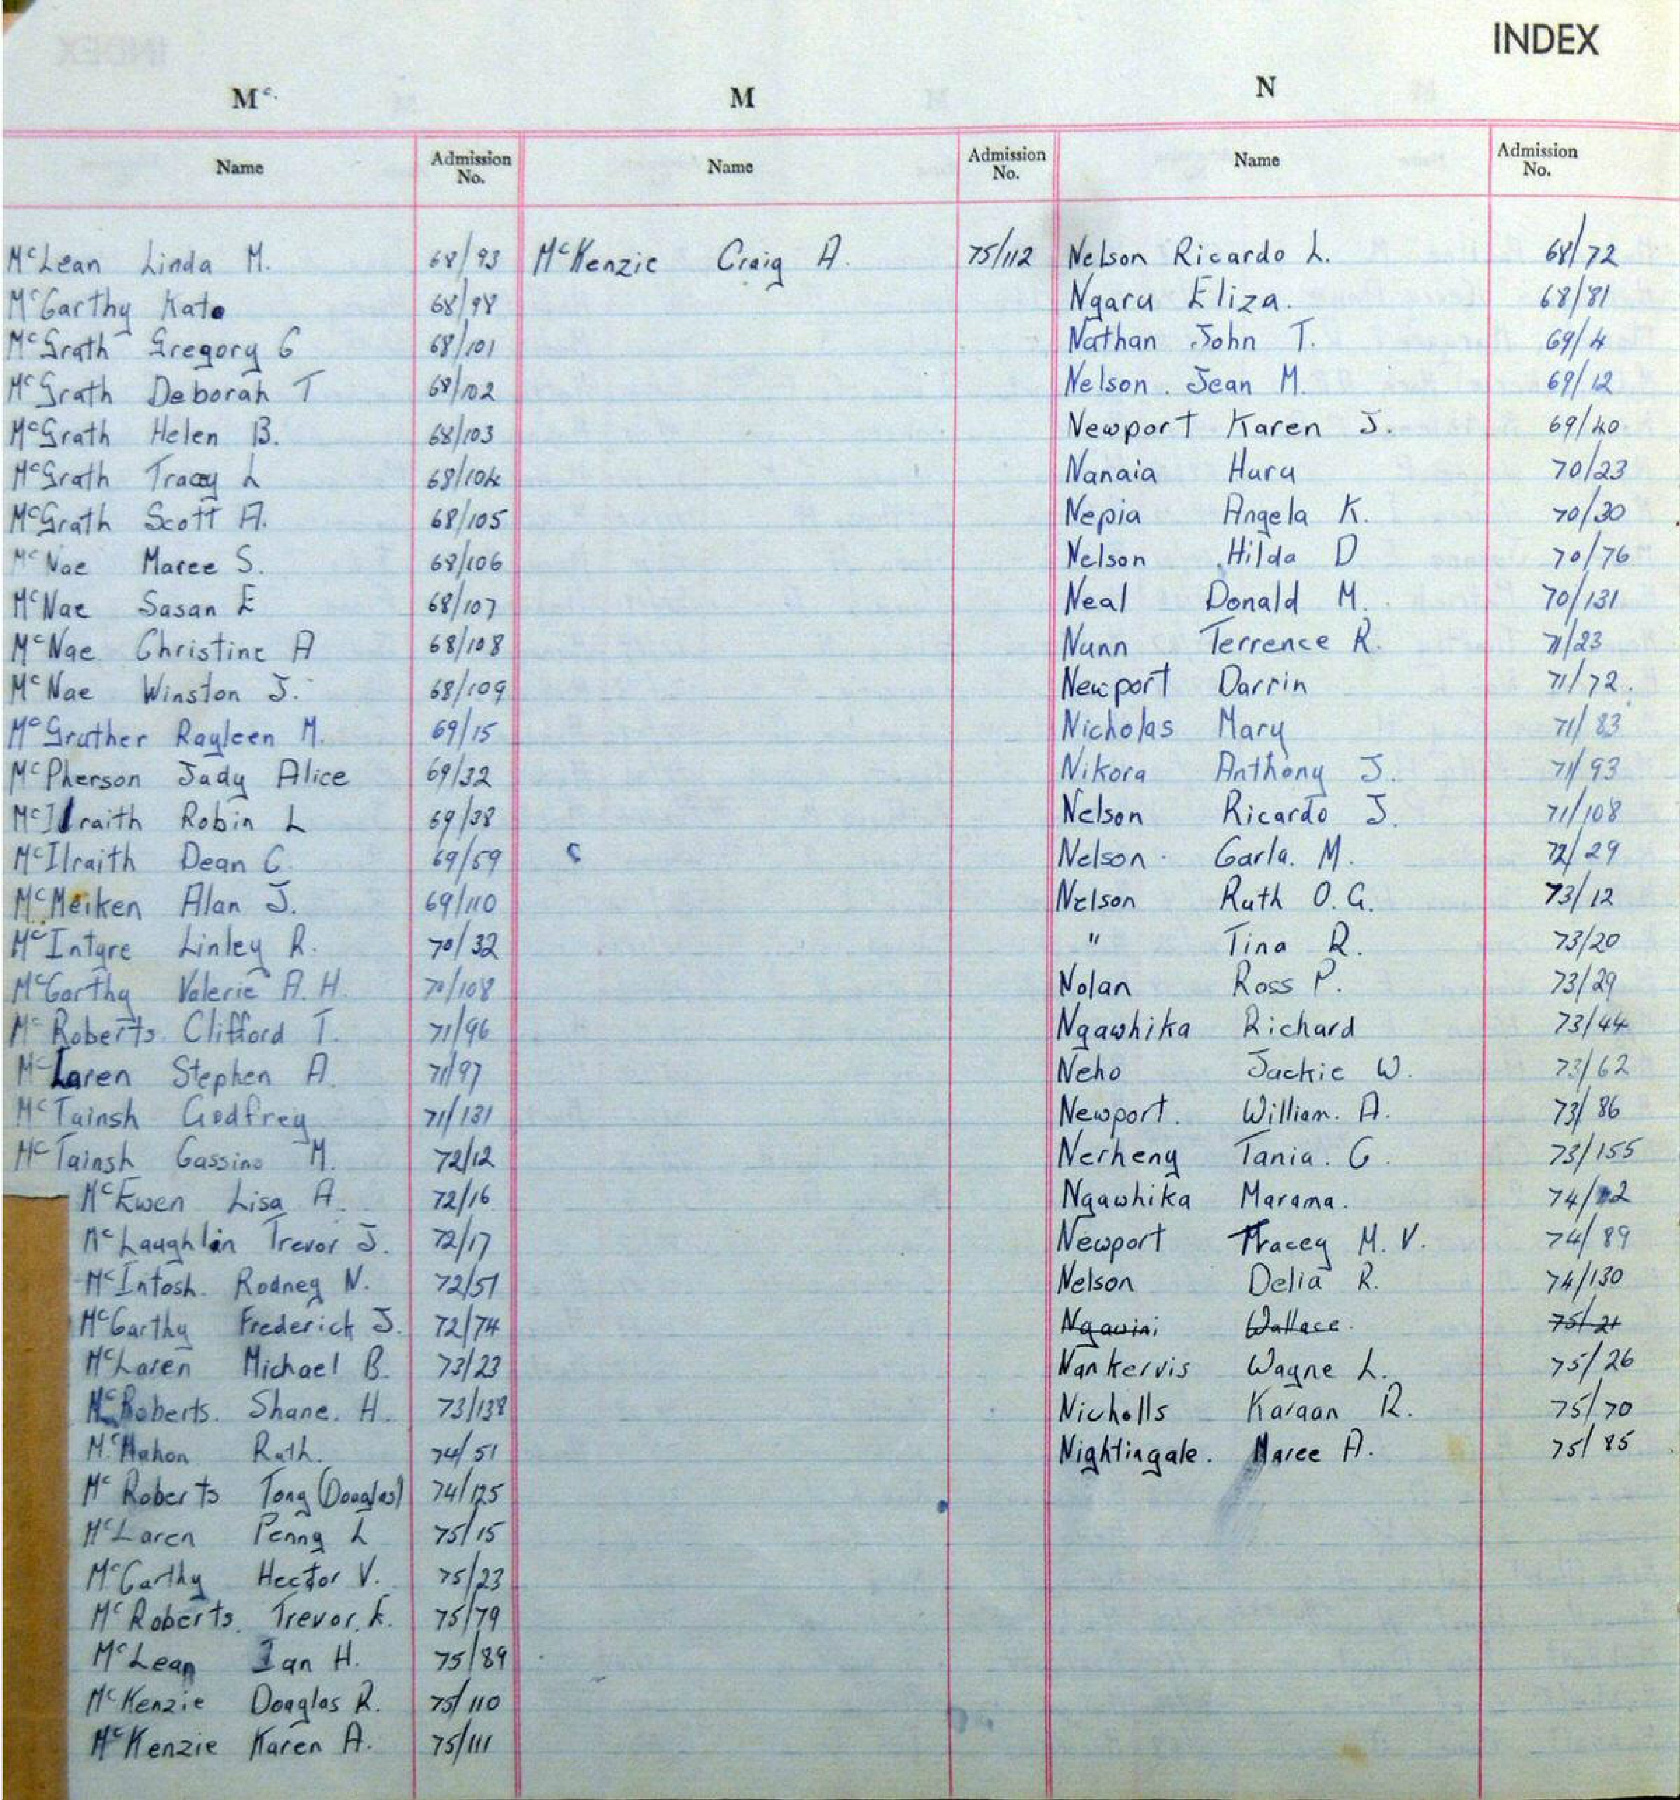 INDEX
Mc.
Name Admission No.
McLean Linda M. 68/93
McCarthy Kate 68/98
McGrath Gregory G 68/101
McGrath Deborah T 68/102
McGrath Helen B. 68/103
McGrath Tracey L 68/104
McGrath Scott A. 68/105
McNae Maree S. 68/106
McNae Susan E 68/107
McNae Christine A 68/108
McNae Winston J. 68/109
McGruther Rayleen M. 69/15
McPherson Judy Alice 69/32
McIlraith Robin L 69/38
McIlraith Dean C. 69/59
McMeiken Alan J. 69/110
McIntyre Linley R. 70/32
McCarthy Valerie A. H. 70/108
McRoberts Clifford T. 71/96
McLaren Stephen A. 71/97
McTainsh Godfrey 71/131
McTainsh Cassino M. 72/12
McEwen Lisa A. 72/16
McLaughlin Trevor J. 72/17
McIntosh. Rodney N. 72/51
McCarthy Frederick J. 72/74
McLaren Michael B. 73/23
McRoberts. Shane. H. 73/138
McMahon Ruth. 74/51
McRoberts Tony (Douglas) 74/125
McLaren Penny L 75/15
McCarthy Hector V. 75/23
McRoberts. Trevor. K. 75/79
McLean Ian H. 75/89
McKenzie Douglas R. 75/110
McKenzie Karen A. 75/111
M
Name Admission No.
McKenzie Craig A. 75/112
N
Name Admission No.
Nelson Ricardo L. 68/72
Ngaru Eliza. 68/81
Nathan John T. 69/4
Nelson. Jean M. 69/12
Newport Karen J. 69/40
Nanaia Huru 70/23
Nepia Angela K. 70/30
Nelson Hilda D 70/76
Neal Donald M. 70/131
Nunn Terrence R. 71/23
Newport Darrin 71/72.
Nicholas Mary 71/83
Nikora Anthony J. 71/93
Nelson Ricardo J. 71/108
Nelson. Carla. M. 72/29
Nelson Ruth O. G. 73/12
" Tina R. 73/20
Nolan Ross P. 73/29
Ngawhika Richard 73/44
Neho Jackie W. 73/62
Newport. William. A. 73/86
Nerheny Tania. C. 73/155
Ngawhika Marama.
Newport Tracey M. V. 74/89
Nelson Delia R. 74/130
Ngawini Wallace. 75/21
Nankervis Wayne L. 75/26
Nicholls Karaan R. 75/70
Nightingale. Maree A. 75/85